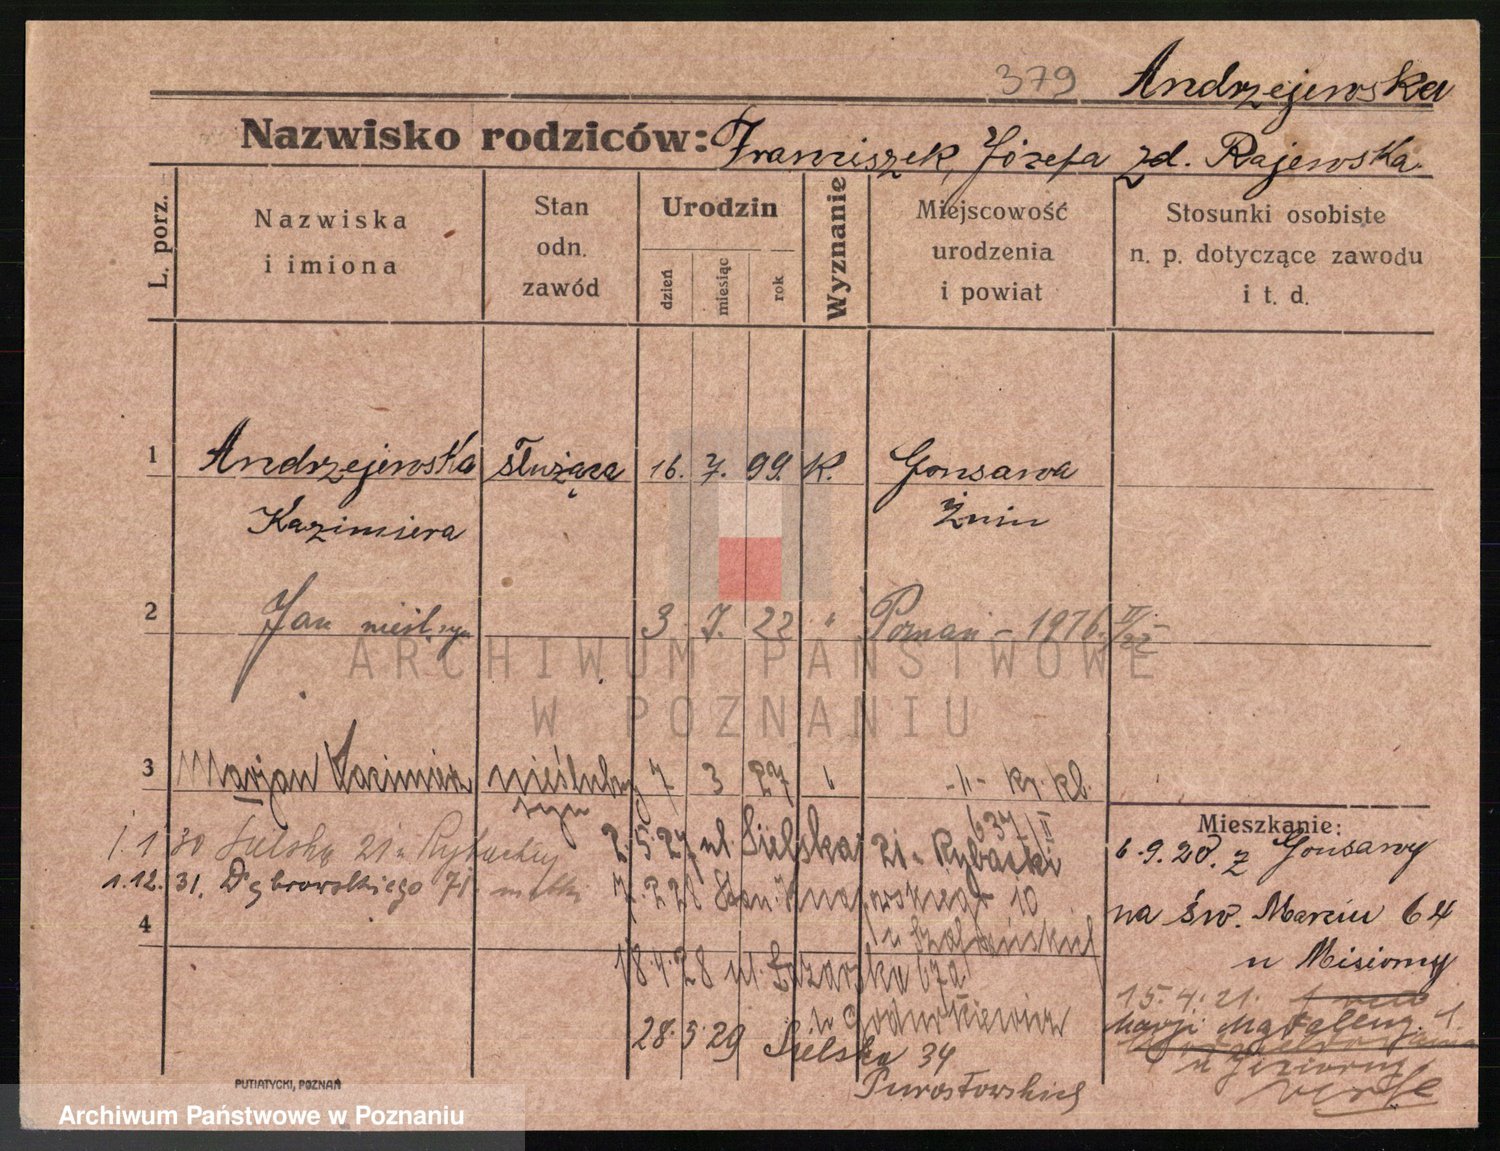 379 Andrzejewska
Nazwisko rodziców: Franciszek, Józefa zd. Rajewska
L. porz.
Nazwiska
i imiona
Stan
odn.
zawód
Urodzin
dzień
miesiąc
rok
Wyznanie
Miejscowość
urodzenia
i powiat
Stosunki osobiste
n. p. dotyczące zawodu
i t. d.
1 Andrzejewska służąca 16. 7. 99. K. Gonsawa
Kazimiera Żnin
2 Jan nieśl. syn 3. 7. 22 " Poznań - 1976. II/22
ARCHIWUM PAŃSTWOWE
W POZNANIU
3 Marjan Kazimierz nieślubny 7 3 27 " -"- kr. kl.
syn 637/II
Mieszkanie:
2.5.27 ul. Sielska 21 u Rybacki
1.1.30 Sielska 21 u Rybackiej
7.2.28 10
1.12.31. Dąbrowskiego 71 matki
4
18.4.28 ul. Łazarska 67a
28.5.29 Sielska 34
6.9.20. z Gonsawy
na św. Marcin 64
u Misiorny
15.4.21.
Marji Magdaleny 1.
u Jeziorny
verte
PUTIATYCKI, POZNAŃ
Archiwum Państwowe w Poznaniu